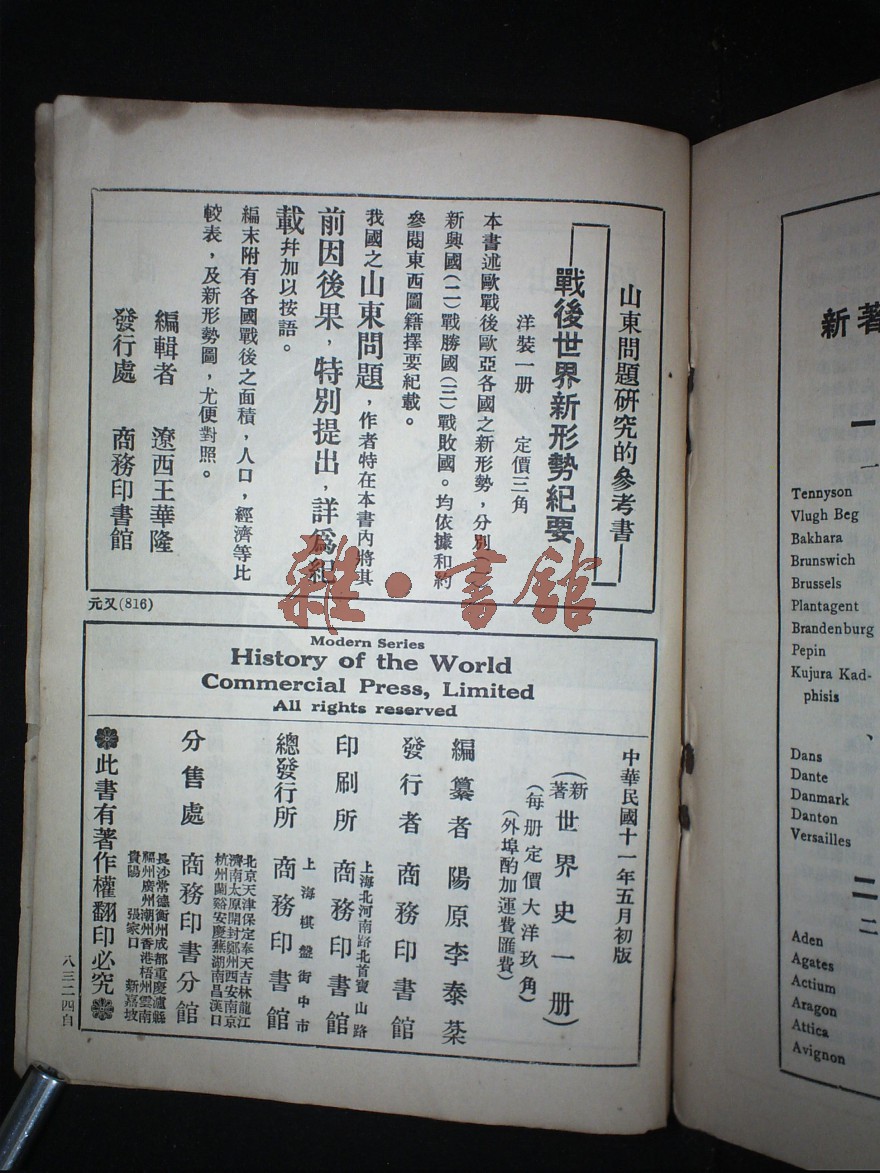 山東問題研究的參考書
戰後世界新形勢紀要
洋裝一册 定價三角
本書述歐戰後歐亞各國之新形勢,分別(一)
新興國(二)戰勝國(三)戰敗國。均依據和約
參閱東西圖籍擇要紀載。
我國之山東問題,作者特在本書內將其
前因後果,特別提出,詳爲紀
載幷加以按語。
編末附有各國戰後之面積,人口,經濟等比
較表,及新形勢圖,尤便對照。
編輯者 遼西王華隆
發行處 商務印書館
元又(816)
雜·書館
Modern Series
History of the World
Commercial Press, Limited
All rights reserved
中華民國十一年五月初版
(新著世界史一册)
(每册定價大洋玖角)
(外埠酌加運費匯費)
編纂者 陽原李泰棻
發行者 商務印書館
印刷所 上海北河南路北首寶山路 商務印書館
總發行所 上海棋盤街中市 商務印書館
分售處 商務印書分館
北京天津保定奉天吉林龍江
濟南太原開封鄭州西安南京
杭州蘭谿安慶蕪湖南昌漢口
長沙常德衡州成都重慶瀘縣
福州廣州潮州香港梧州雲南
貴陽 張家口 新嘉坡
此書有著作權翻印必究
八三二四自
新著
一
一
Tennyson
Vlugh Beg
Bakhara
Brunswich
Brussels
Plantagent
Brandenburg
Pepin
Kujura Kad-
phisis
、
Dans
Dante
Danmark
Danton
Versailles
二
二
Aden
Agates
Actium
Aragon
Attica
Avignon